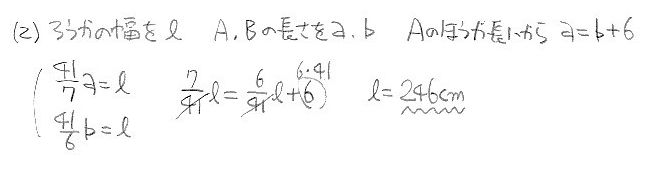 (2) ろうかの幅をl A、Bの長さをa、b Aのほうが長いから a=b+6
41/7 a=l 7/41 l=6/41 l+6 6・41 l=246cm
41/6 b=l